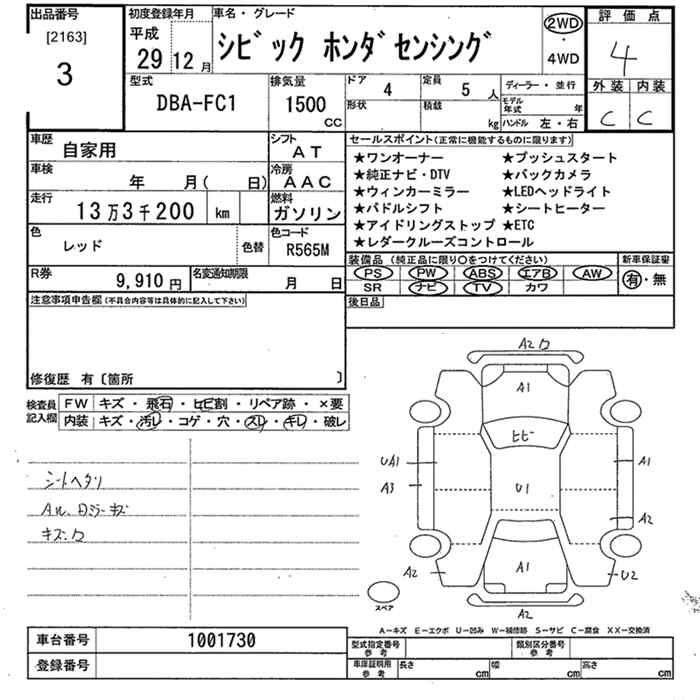 出品番号
[2163]
3
初度登録年月
平成
29 12 月
車名・グレード
シビック ホンダセンシング
2WD
・
4WD
評価点
4
外装 内装
C C
型式
DBA-FC1
排気量
1500
CC
ドア 4
定員 5 人
形状
積載 kg
ディーラー・並行
モデル年式 年
ハンドル 左・右
車歴
自家用
シフト
AT
車検
年 月( 日)
冷房
AAC
走行
13万3千200 km
燃料
ガソリン
色
レッド
色替
色コード
R565M
R券
9,910 円
名変通知期限
月 日
セールスポイント(正常に機能するものに限ります)
★ワンオーナー ★プッシュスタート
★純正ナビ・DTV ★バックカメラ
★ウィンカーミラー ★LEDヘッドライト
★パドルシフト ★シートヒーター
★アイドリングストップ ★ETC
★レダークルーズコントロール
装備品 (純正品に限り○をつけてください)
PS PW ABS エアB AW
SR ナビ TV カワ
新車保証書
有・無
後日品
注意事項申告欄(不具合内容等は具体的に記入して下さい)
修復歴 有〔箇所 〕
検査員
記入欄
FW キズ・飛石・ヒビ割・リペア跡・×要
内装 キズ・汚レ・コゲ・穴・スレ・キレ・破レ
シートヘタリ
キズ・ワ
A2 ワ
A1
ヒビ
UA1
A3
U1
A1
A2
A2
A1
U2
A2
スペア
A-キズ E-エクボ U-凹み W-補修跡 S-サビ C-腐食 XX-交換済
車台番号 1001730
登録番号
型式指定番号
参考
類別区分番号
参考
車庫証明用
参考
長さ cm 幅 cm 高さ cm